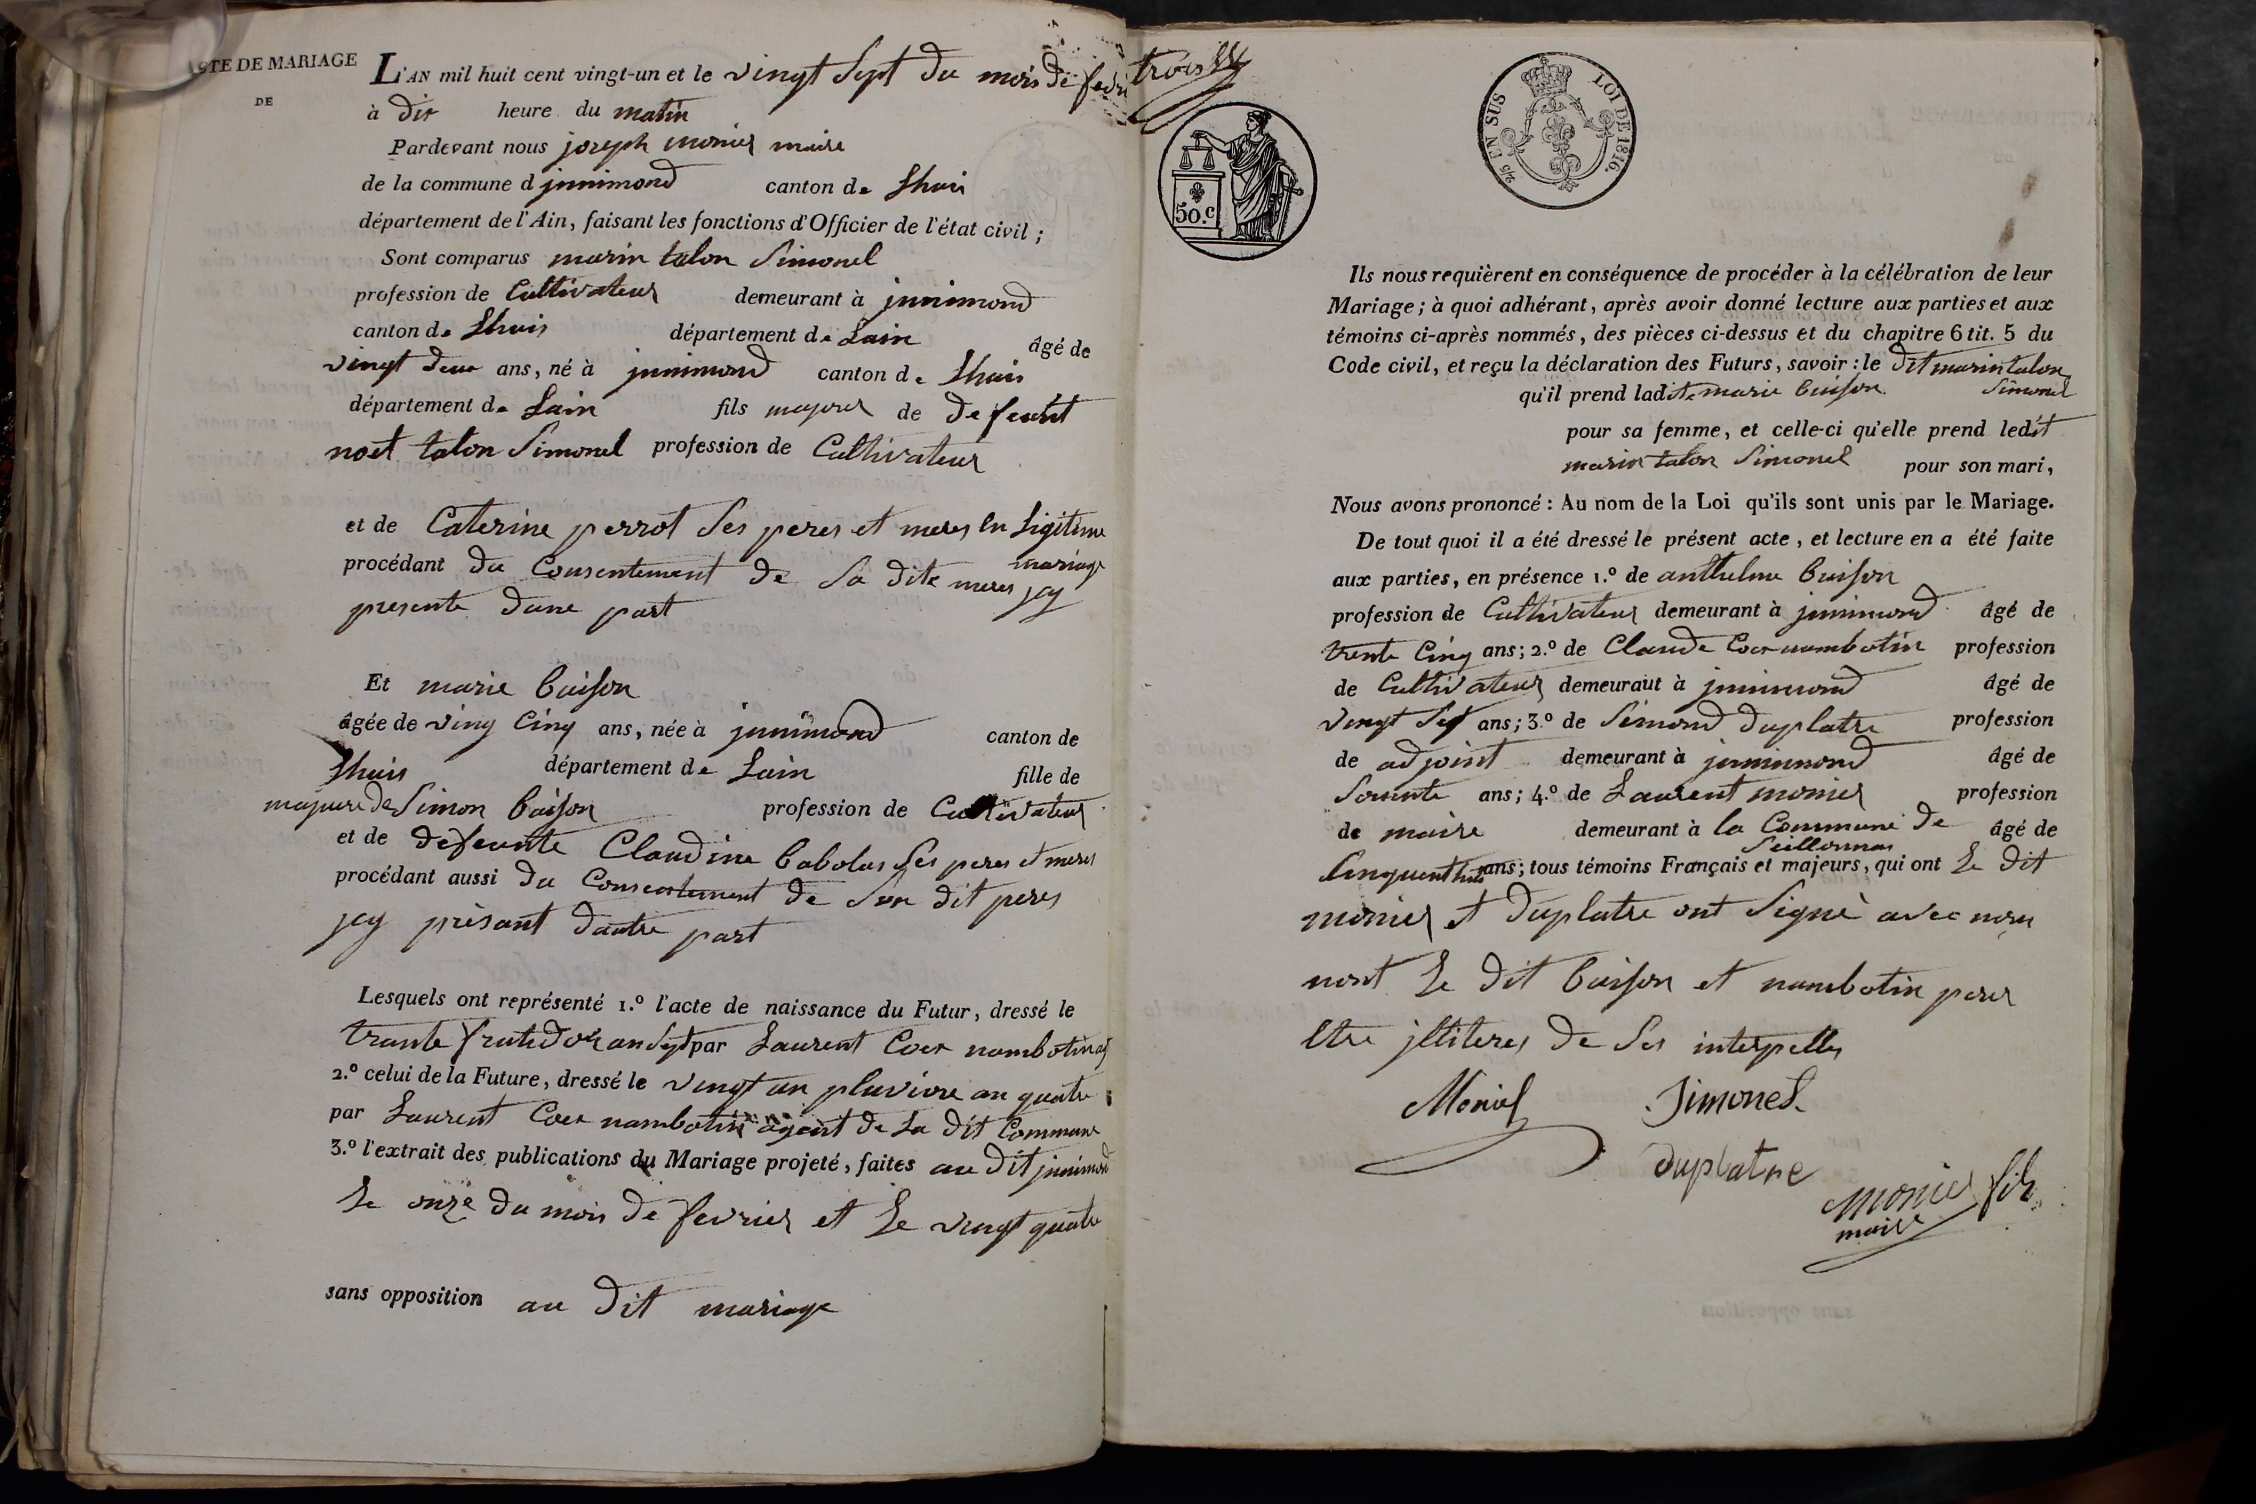 ACTE DE MARIAGE
DE
L'AN mil huit cent vingt-un et le vingt sept du mois de fevri
à dix heure du matin
Pardevant nous joseph monier maire
de la commune d jnnimond canton de Lhuis
département de l'Ain, faisant les fonctions d'Officier de l'état civil ;
Sont comparus marin talon Simonel
profession de Cultivateur demeurant à jnnimond
canton de Lhuis département de Lain âgé de
vingt deux ans, né à jnnimond canton de Lhuis
département de Lain fils majeur de defeunt
noel talon Simonel profession de Cultivateur
et de Caterine perrot Ses peres et meres en Ligitime
mariage
procédant du Consentement de Sa dite meres jcy
presente dune part
Et marie buison
âgée de ving Cinq ans, née à jnnimond canton de
Lhuis département de Lain fille de
majeure de Simon buison profession de Cultivateur
et de defeunte Claudine babolas Ses peres et meres
procédant aussi du Consentement de Son dit peres
jcy présant dautre part
Lesquels ont représenté 1.º l'acte de naissance du Futur, dressé le
trante frutidor an Sept par Laurent Coer nambotin
2.º celui de la Future, dressé le vingt un pluviose an quatre
par Laurent Coer nambotin agent de La dit Commune
3.º l'extrait des publications du Mariage projeté, faites au dit jnnimond
Le onze du mois de fevrier et Le vingt quatre
sans opposition au dit mariage
trois
50.c
25 EN SUS LOI DE 1816.
Ils nous requièrent en conséquence de procéder à la célébration de leur
Mariage ; à quoi adhérant, après avoir donné lecture aux parties et aux
témoins ci-après nommés, des pièces ci-dessus et du chapitre 6 tit. 5 du
Code civil, et reçu la déclaration des Futurs, savoir : le dit marin talon
Simonel
qu'il prend ladite marie buison
pour sa femme, et celle-ci qu'elle prend ledit
marin talon Simonel pour son mari,
Nous avons prononcé : Au nom de la Loi qu'ils sont unis par le Mariage.
De tout quoi il a été dressé le présent acte, et lecture en a été faite
aux parties, en présence 1.º de anthelme buison
profession de Cultivateur demeurant à jnnimond âgé de
trente Cinq ans ; 2.º de Claude Coer nambotin profession
de Cultivateur demeurant à jnnimond âgé de
vingt Sept ans ; 3.º de Simond duplatre profession
de adjoint demeurant à jnnimond âgé de
Soixante ans ; 4.º de Laurent monier profession
de maire demeurant à la Commune de âgé de
Seillonnas
Cinquent huit ans ; tous témoins Français et majeurs, qui ont Le dit
monier et duplatre ont Signé avec nous
nont Le dit buison et nambotin pour
Etre jlliteres de Ses interpelles
Monier Simonel
duplatre
monier fils
maire